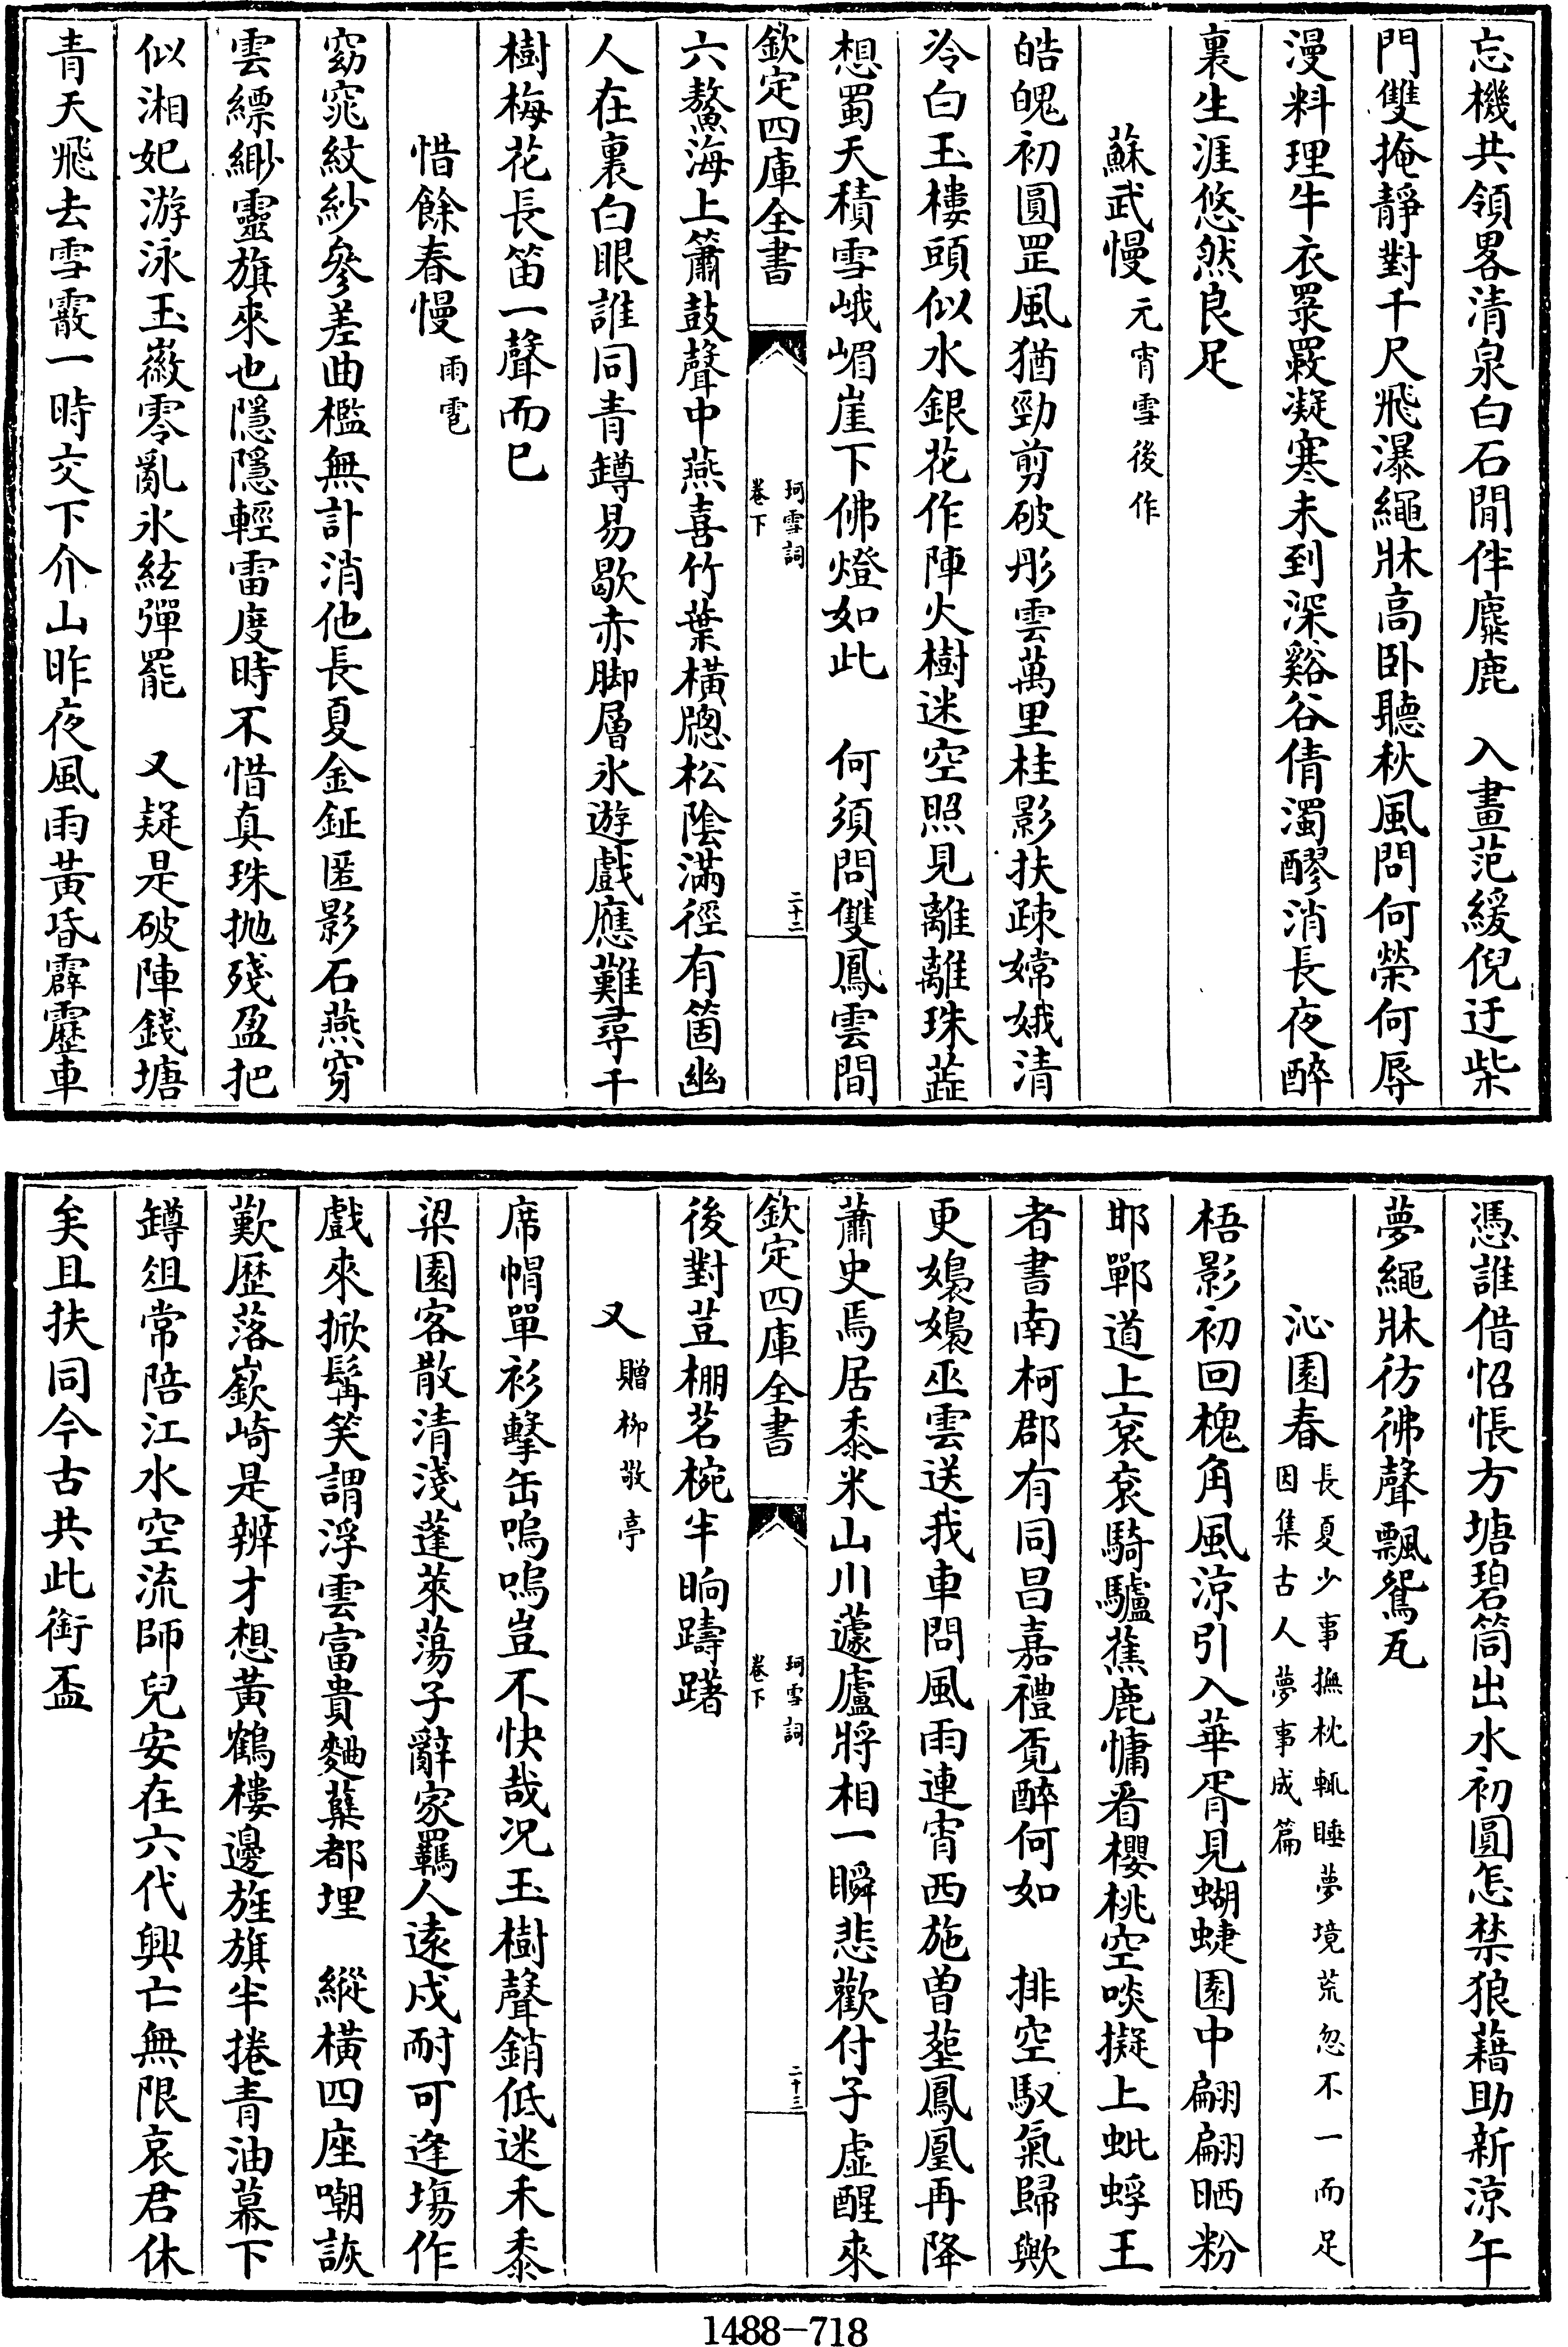 忘機共領畧清泉白石閒伴麋鹿　入畫范緩倪迂柴
門雙掩靜對千尺飛瀑繩牀高卧聽秋風問何榮何辱
漫料理牛衣罣罬凝寒未到深谿谷倩濁醪消長夜醉
裏生涯悠然良足
蘇武慢元宵雪後作
皓魄初圓罡風猶勁剪破彤雲萬里桂影扶疎嫦娥清
冷白玉樓頭似水銀花作陣火樹迷空照見離離珠蘂
想蜀天積雪峨嵋崖下佛燈如此　何須問雙鳳雲間
欽定四庫全書
珂雪詞
卷下
二十二
六鰲海上簫鼓聲中燕喜竹葉橫牕松陰滿徑有箇幽
人在裏白眼誰同青罇易歇赤脚層氷遊戲應難尋千
樹梅花長笛一聲而已
惜餘春慢雨雹
窈窕紋紗參差曲檻無計消他長夏金鉦匿影石燕穿
雲縹緲靈旗來也隱隱輕雷度時不惜真珠抛殘盈把
似湘妃游泳玉徽零亂氷絃彈罷　又疑是破陣錢塘
青天飛去雪霰一時交下介山昨夜風雨黃昏霹靂車
憑誰借怊悵方塘碧筒出水初圓怎禁狼藉助新涼午
夢繩牀彷彿聲飄鴛瓦
沁園春長夏少事撫枕輒睡夢境荒忽不一而足
因集古人夢事成篇
梧影初回槐角風涼引入華胥見蝴蜨園中翩翩晒粉
邯鄲道上衮衮騎驢蕉鹿慵看櫻桃空啖擬上蚍蜉王
者書南柯郡有同昌嘉禮覔醉何如　排空馭氣歸歟
更嬝嬝巫雲送我車問風雨連宵西施曽塟鳳凰再降
蕭史焉居黍米山川蘧廬將相一瞬悲歡付子虛醒來
欽定四庫全書
珂雪詞
卷下
二十三
後對荳棚茗椀半晌躊躇
又贈柳敬亭
席帽單衫擊缶嗚嗚豈不快哉况玉樹聲銷低迷禾黍
梁園客散清淺蓬萊蕩子辭家羈人遠戍耐可逢塲作
戲來掀髯笑謂浮雲富貴麯蘖都埋　縱橫四座嘲詼
歎歷落嶔崎是辨才想黃鶴樓邊旌旗半捲青油幕下
罇俎常陪江水空流師兒安在六代興亡無限哀君休
矣且扶同今古共此銜盃
1488-718